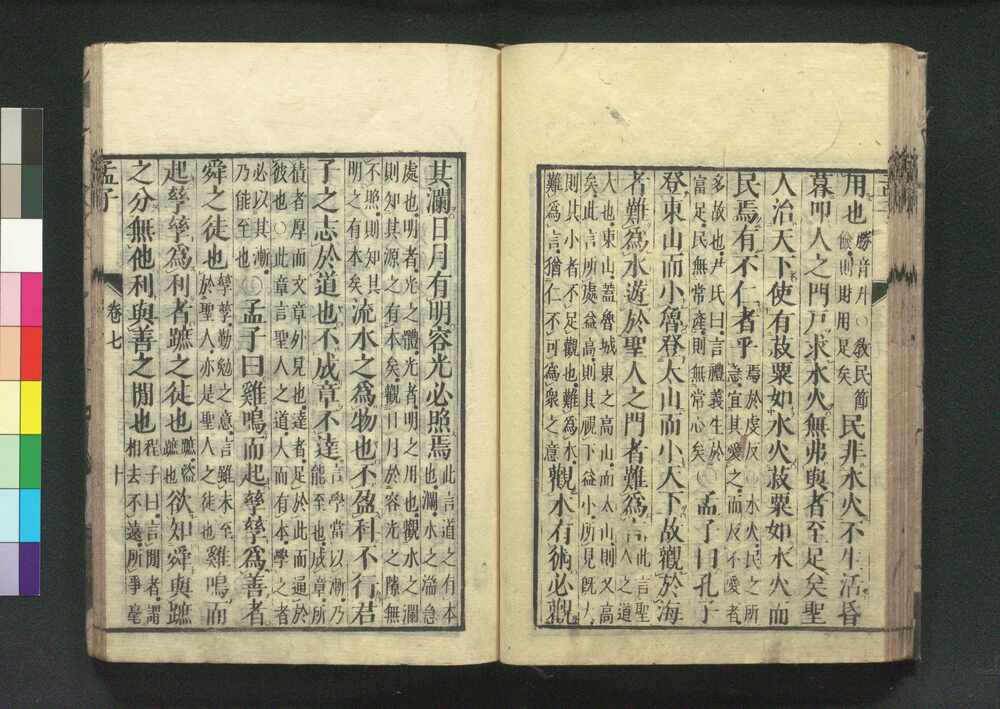 用也
勝音升○教民節
儉則財用足矣
民非水火不生活昏
暮叩人之門戶求水火無弗與者至足矣聖
人治天下使有菽粟如水火菽粟如水火而
民焉有不仁者乎
焉於虔反○水火民之所
急宜其愛之而反不愛者
多故也尹氏曰言禮義生於
富足民無常產則無常心矣
○孟子曰孔子
登東山而小魯登太山而小天下故觀於海
者難爲水遊於聖人之門者難爲言
此言聖
人之道
大也東山蓋魯城東之高山而太山則又高
矣此言所處益高則其視下益小所見既大
則其小者不足觀也難爲水
難爲言猶仁不可爲衆之意
觀水有術必觀
其瀾日月有明容光必照焉
此言道之有本
也瀾水之湍急
處也明者光之體光者明之用也觀水之瀾
則知其源之有本矣觀日月於容光之隙無
不照則知其
明之有本矣
流水之爲物也不盈科不行君
子之志於道也不成章不達
言學當以漸乃
能至也成章所
積者厚而文章外見也達者足於此而通於
彼也○此章言聖人之道大而有本學之者
必以其漸
乃能至也
○孟子曰雞鳴而起孳孳爲善者
舜之徒也
孳孳勤勉之意言雖未至
於聖人亦是聖人之徒也
雞鳴而
起孳孳爲利者蹠之徒也
蹠盜
蹠也
欲知舜與蹠
之分無他利與善之閒也
程子曰言閒者謂
相去不遠所爭毫
孟子
卷七
十